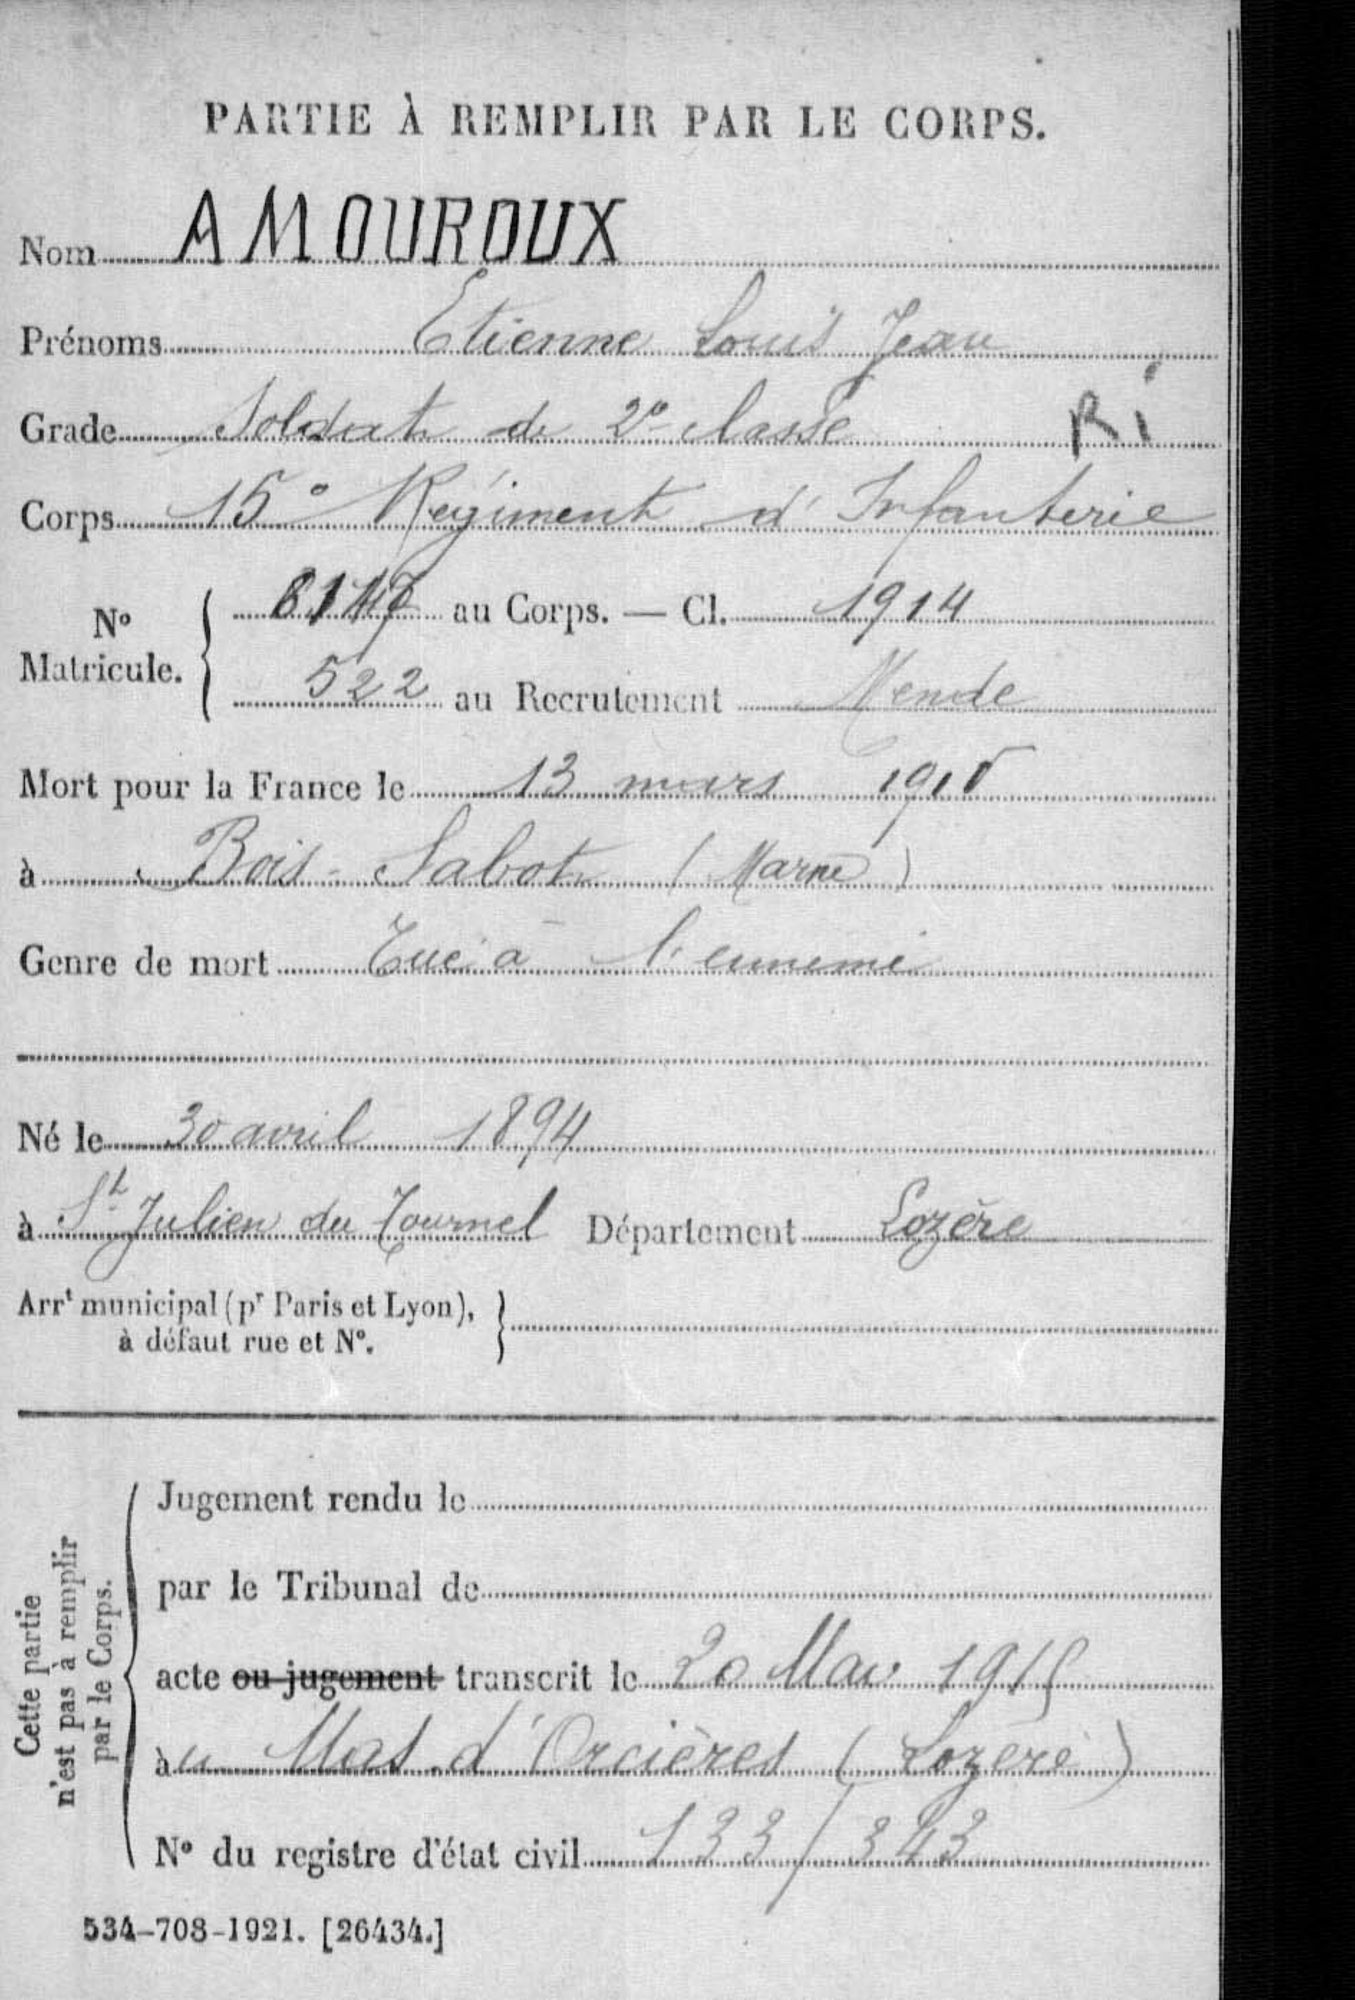 PARTIE À REMPLIR PAR LE CORPS.
Nom AMOUROUX
Prénoms Etienne Louis Jean
Grade Soldat de 2e classe RI
Corps 15e Régiment d'Infanterie
No Matricule. au Corps. — Cl. 1914
522 au Recrutement Mende
Mort pour la France le 13 mars 1915
à Bois-Sabot (Marne)
Genre de mort Tué à l'ennemi
Né le 30 avril 1894
à St Julien du Tournel Département Lozère
Arrt municipal (pr Paris et Lyon),
à défaut rue et No.
Cette partie
n'est pas à remplir
par le Corps.
Jugement rendu le
par le Tribunal de
acte ou jugement transcrit le 20 Mai 1915
au Mas d'Orcières (Lozère)
No du registre d'état civil 133/343
534-708-1921. [26434.]